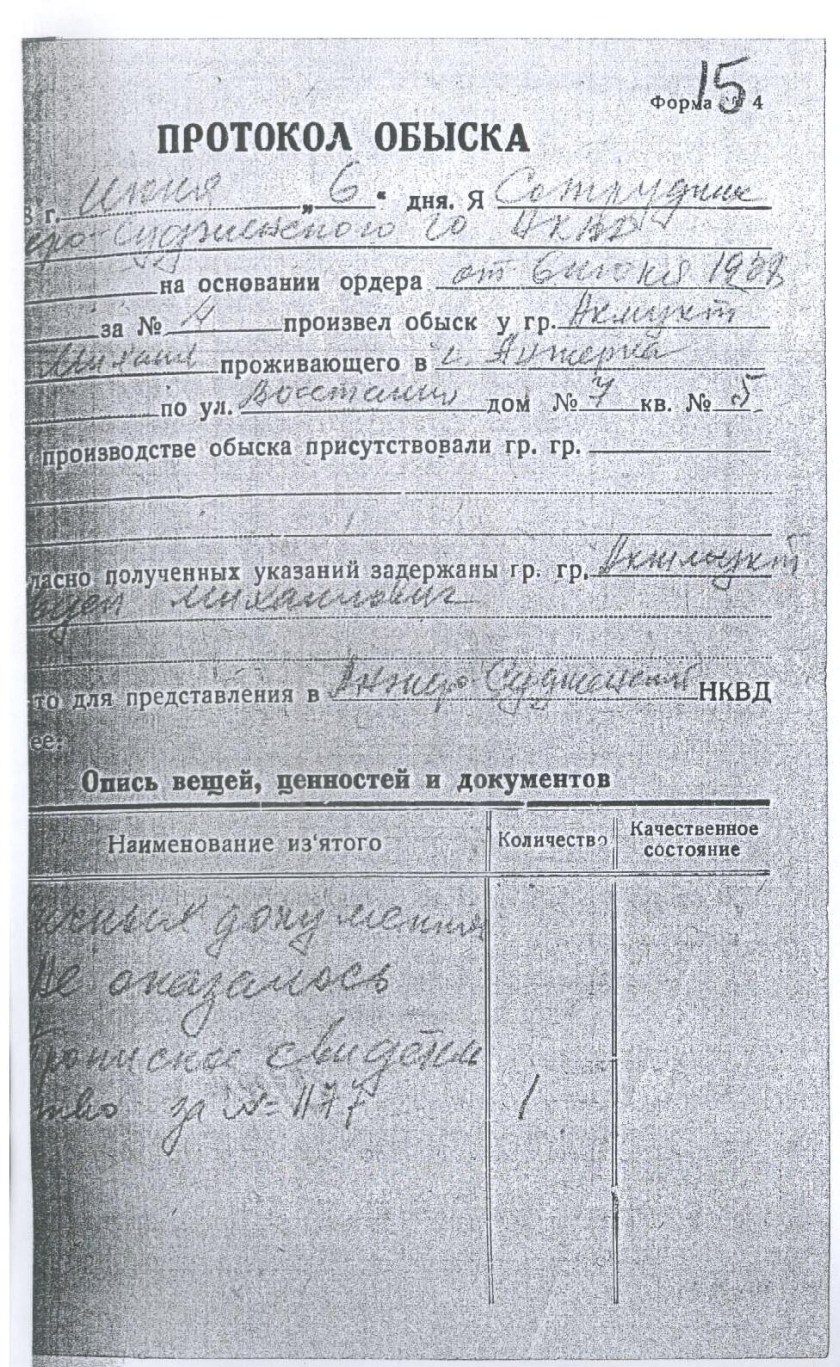 15
Форма № 4
ПРОТОКОЛ ОБЫСКА
8 г. июня „ 6 “ дня. Я Сотрудник
ро-Судженского го НКВД
на основании ордера от 6 июня 1938
за № 4 произвел обыск у гр.
Михаил проживающего в г. Анжерка
по ул. Восстания дом № 7 кв. № 5
производстве обыска присутствовали гр. гр.
ласно полученных указаний задержаны гр. гр.
Михаилович
то для представления в Анжеро-Судженский НКВД
ее:
Опись вещей, ценностей и документов
Наименование из'ятого Количество Качественное состояние
документов
Не оказалось
свидетель
тво за № 1177 1